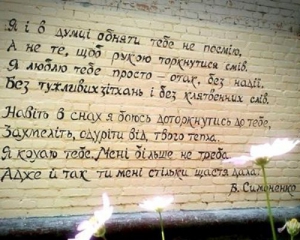 Я і в думці обняти тебе не посмію,
А не те, щоб рукою торкнутися смів.
Я люблю тебе просто – отак, без надії,
Без тужливих зітхань і без клятвенних слів.
Навіть в снах я боюсь доторкнутись до тебе,
Захмеліть, одуріти від твого тепла.
Я кохаю тебе. Мені більше не треба.
Адже й так ти мені стільки щастя дала.
В. Симоненко